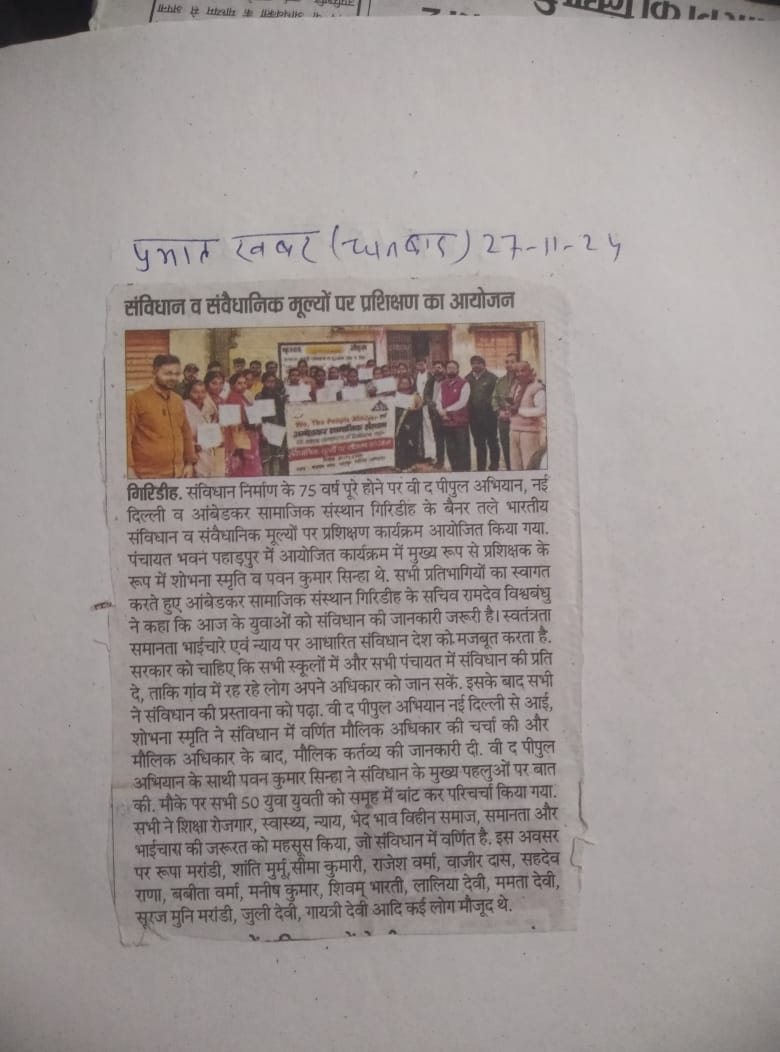 प्रभात खबर (धनबाद) 27-11-24
संविधान व संवैधानिक मूल्यों पर प्रशिक्षण का आयोजन
We, The People
अम्बेडकर सामाजिक संस्थान
गिरिडीह. संविधान निर्माण के 75 वर्ष पूरे होने पर वी द पीपुल अभियान, नई
दिल्ली व आंबेडकर सामाजिक संस्थान गिरिडीह के बैनर तले भारतीय
संविधान व संवैधानिक मूल्यों पर प्रशिक्षण कार्यक्रम आयोजित किया गया.
पंचायत भवन पहाड़पुर में आयोजित कार्यक्रम में मुख्य रूप से प्रशिक्षक के
रूप में शोभना स्मृति व पवन कुमार सिन्हा थे. सभी प्रतिभागियों का स्वागत
करते हुए आंबेडकर सामाजिक संस्थान गिरिडीह के सचिव रामदेव विश्वबंधु
ने कहा कि आज के युवाओं को संविधान की जानकारी जरूरी है। स्वतंत्रता
समानता भाईचारे एवं न्याय पर आधारित संविधान देश को मजबूत करता है.
सरकार को चाहिए कि सभी स्कूलों में और सभी पंचायत में संविधान की प्रति
दे, ताकि गांव में रह रहे लोग अपने अधिकार को जान सकें. इसके बाद सभी
ने संविधान की प्रस्तावना को पढ़ा. वी द पीपुल अभियान नई दिल्ली से आई,
शोभना स्मृति ने संविधान में वर्णित मौलिक अधिकार की चर्चा की और
मौलिक अधिकार के बाद, मौलिक कर्तव्य की जानकारी दी. वी द पीपुल
अभियान के साथी पवन कुमार सिन्हा ने संविधान के मुख्य पहलुओं पर बात
की. मौके पर सभी 50 युवा युवती को समूह में बांट कर परिचर्चा किया गया.
सभी ने शिक्षा रोजगार, स्वास्थ्य, न्याय, भेद भाव विहीन समाज, समानता और
भाईचारा की जरूरत को महसूस किया, जो संविधान में वर्णित है. इस अवसर
पर रूपा मरांडी, शांति मुर्मू, सीमा कुमारी, राजेश वर्मा, वाजीर दास, सहदेव
राणा, बबीता वर्मा, मनीष कुमार, शिवम् भारती, लालिया देवी, ममता देवी,
सूरज मुनि मरांडी, जुली देवी, गायत्री देवी आदि कई लोग मौजूद थे.